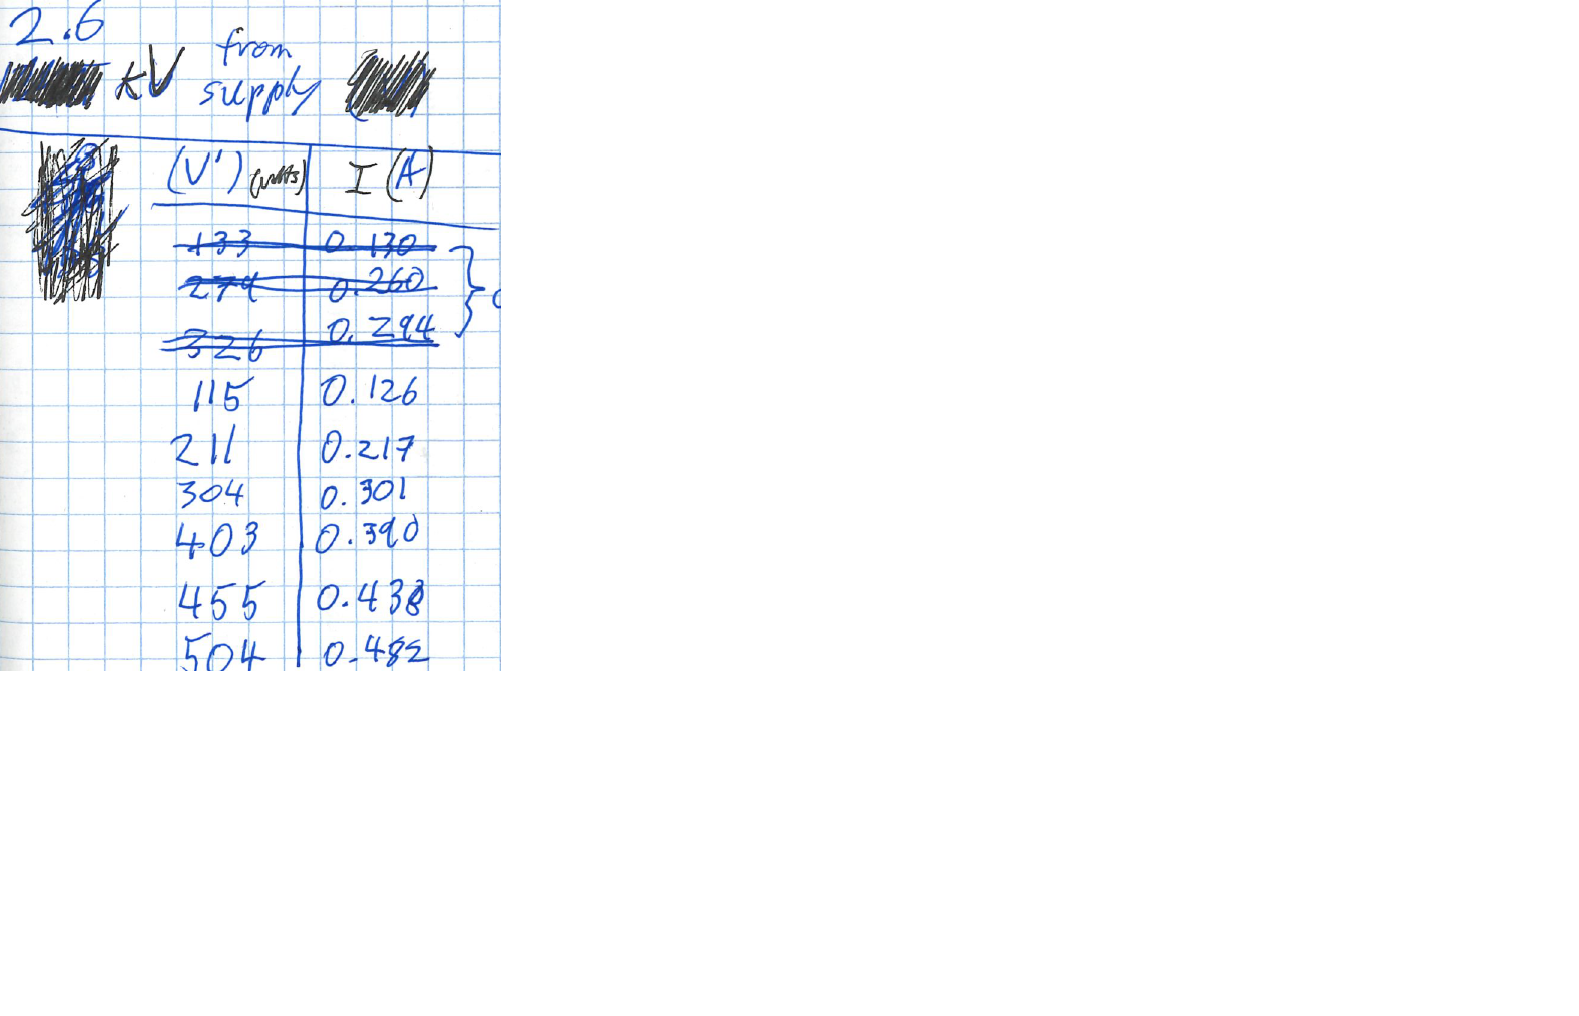 2.6
kV from supply
(V') (volts) I (A)
133 0.130
274 0.260
326 0.294
115 0.126
211 0.217
304 0.301
403 0.390
455 0.438
504 0.482